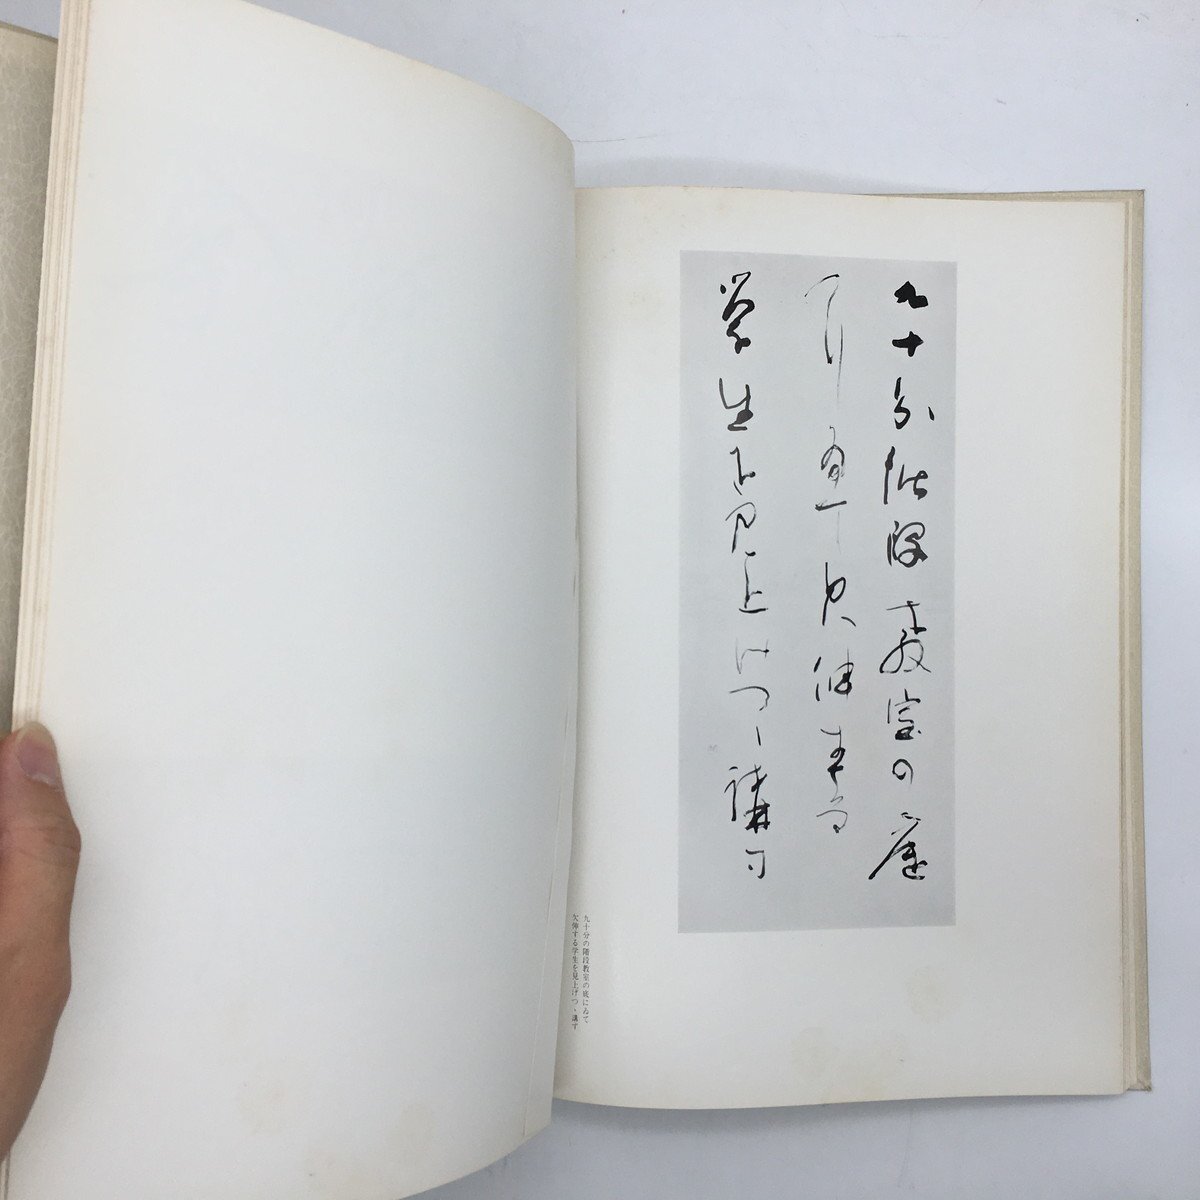 九十分階段教室の底
にゐて欠伸する
学生を見上げつゝ講す
九十分の階段教室の底にゐて
欠伸する学生を見上げつゝ講す